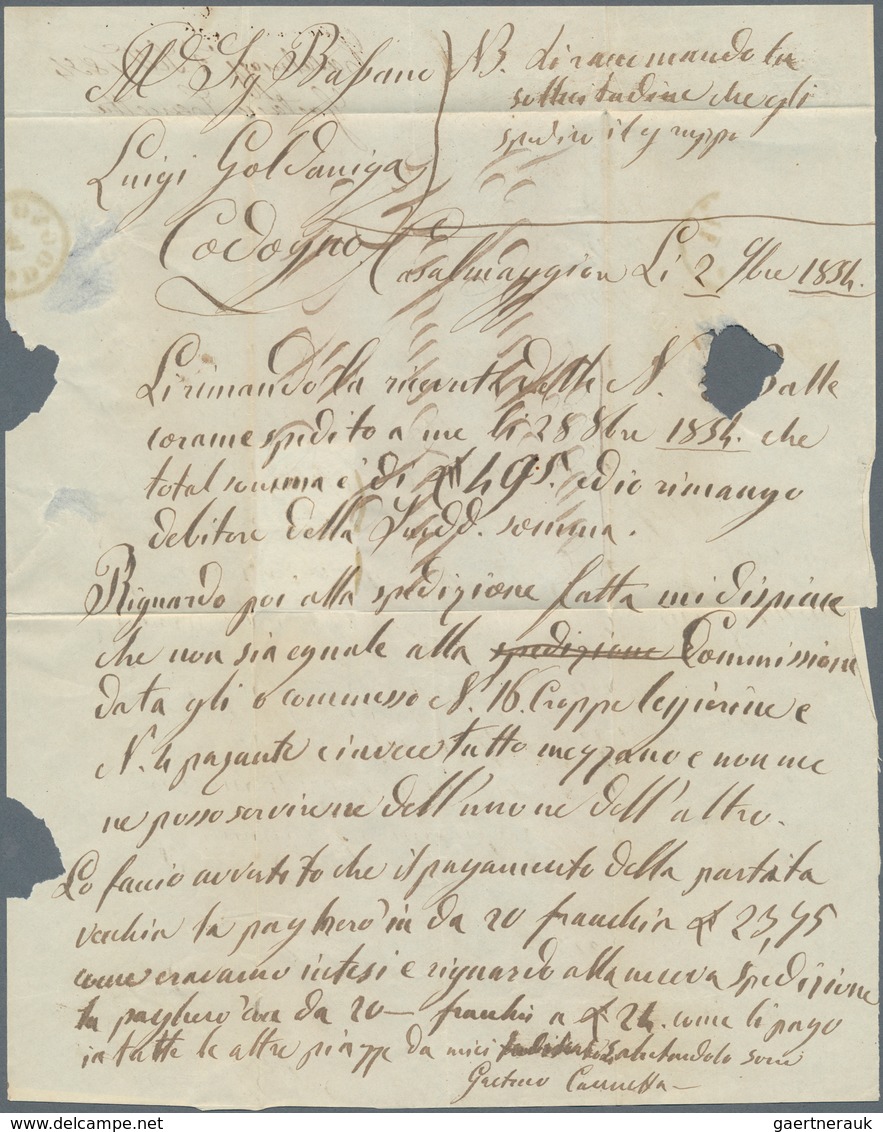 Al Sig Bassano
Luigi Goldaniga
Codogno
NB. Li raccomando la
sollicitudine che gli
spedire il gruppo
Casalmaggiore Li 2 9bre 1854.
Li rimando la ricevuta delle N. Balle
corame spedito a me li 28 8bre 1854. che
total somma e' di 495. ed io rimango
debitore della Sudd. somma.
Riguardo poi alla spedizione fatta mi dispiace
che non sia eguale alla spedizione Commissione
data gli o commesso N. 16. Croppe leggierine e
N. 4 pesante e invece tutto mezzano e non me
ne posso servirene dell'uno ne dell'altro.
Lo faccio avvertito che il pagamento della partita
vecchia la pagherò in da 20 franchi a 23,75
come eravamo intesi e riguardo alla nuova spedizione
la pagherò con da 20 — franchi a 24. come li pago
in tutte le altre piazze da miei salutandolo sono
Gaetano
gaertnerauk